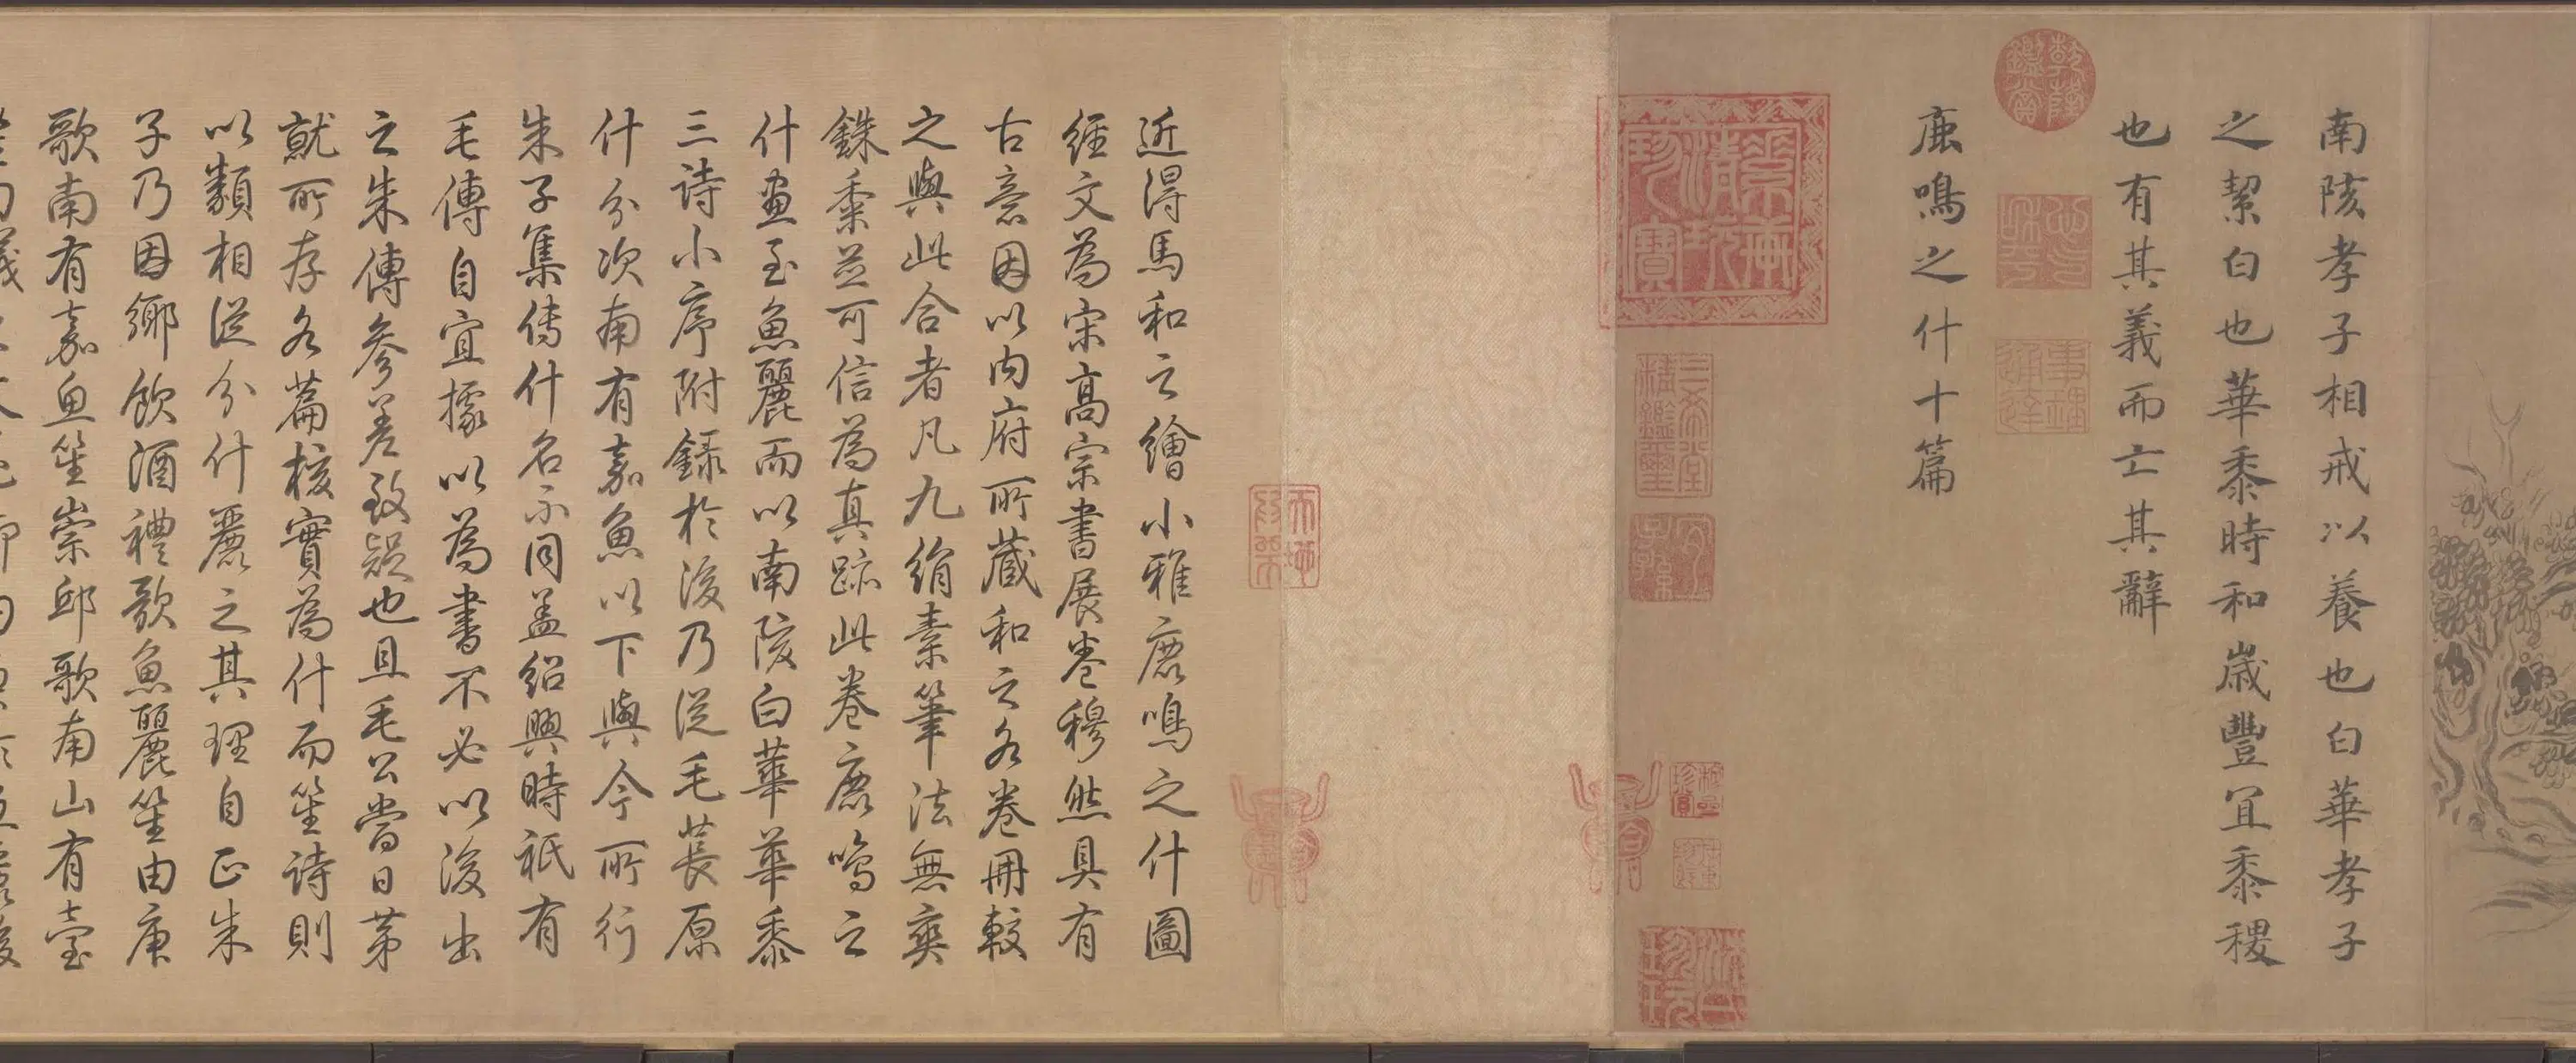 南陔孝子相戒以養也白華孝子
之絜白也華黍時和歲豐宜黍稷
也有其義而亡其辭
鹿鳴之什十篇
乾隆鑑賞
三希堂精鑑璽
宜子孫
近得馬和之繪小雅鹿鳴之什圖
經文為宋高宗書展卷穆然具有
古意因以內府所藏和之各卷冊較
之與此合者凡九絹素筆法無爽
銖黍並可信為真跡此卷鹿鳴之
什畫至魚麗而以南陔白華華黍
三詩小序附錄於後乃從毛萇原
什分次南有嘉魚以下與今所行
朱子集傳什名不同蓋紹興時祇有
毛傳自宜據以為書不必以後出
之朱傳參差致疑也且毛公當日第
就所存各篇核實為什而笙詩則
以類相從分什麗之其理自正朱
子乃因鄉飲酒禮歌魚麗笙由庚
歌南有嘉魚笙崇邱歌南山有臺